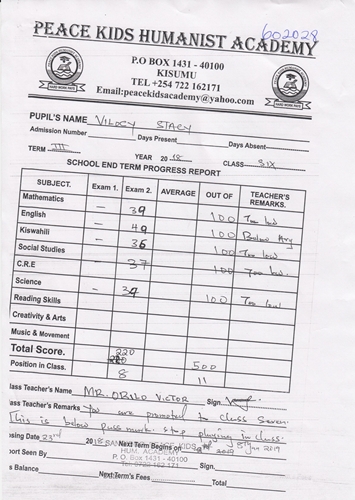 602028
PEACE KIDS HUMANIST ACADEMY
P.O BOX 1431 - 40100
KISUMU
TEL +254 722 162171
Email:peacekidsacademy@yahoo.com
PUPIL'S NAME VILOCY STACY
Admission Number Days Present Days Absent
TERM III YEAR 2018 CLASS SIX
SCHOOL END TERM PROGRESS REPORT
SUBJECT. Exam 1. Exam 2. AVERAGE OUT OF TEACHER'S REMARKS.
Mathematics – 39 100 Too low
English – 49 100 Below Avg
Kiswahili – 36 100 Too low
Social Studies – 37 100 Too low
C.R.E
Science – 39 100 Too low
Reading Skills
Creativity & Arts
Music & Movement
Total Score. 220 500
Position in Class. 8 11
lass Teacher's Name MR. OBILO VICTOR Sign.
lass Teacher's Remarks You are promoted to class seven.
This is below pass mark. stop playing in class.
osing Date 23rd 2018 Next Term Begins on Jan 2019
PEACE KIDS
HUM. ACADEMY
P. O. Box 1431 - 40100
Tel: 0722 162 171
port Seen By Sign.
s Balance Next Term's Fees Total